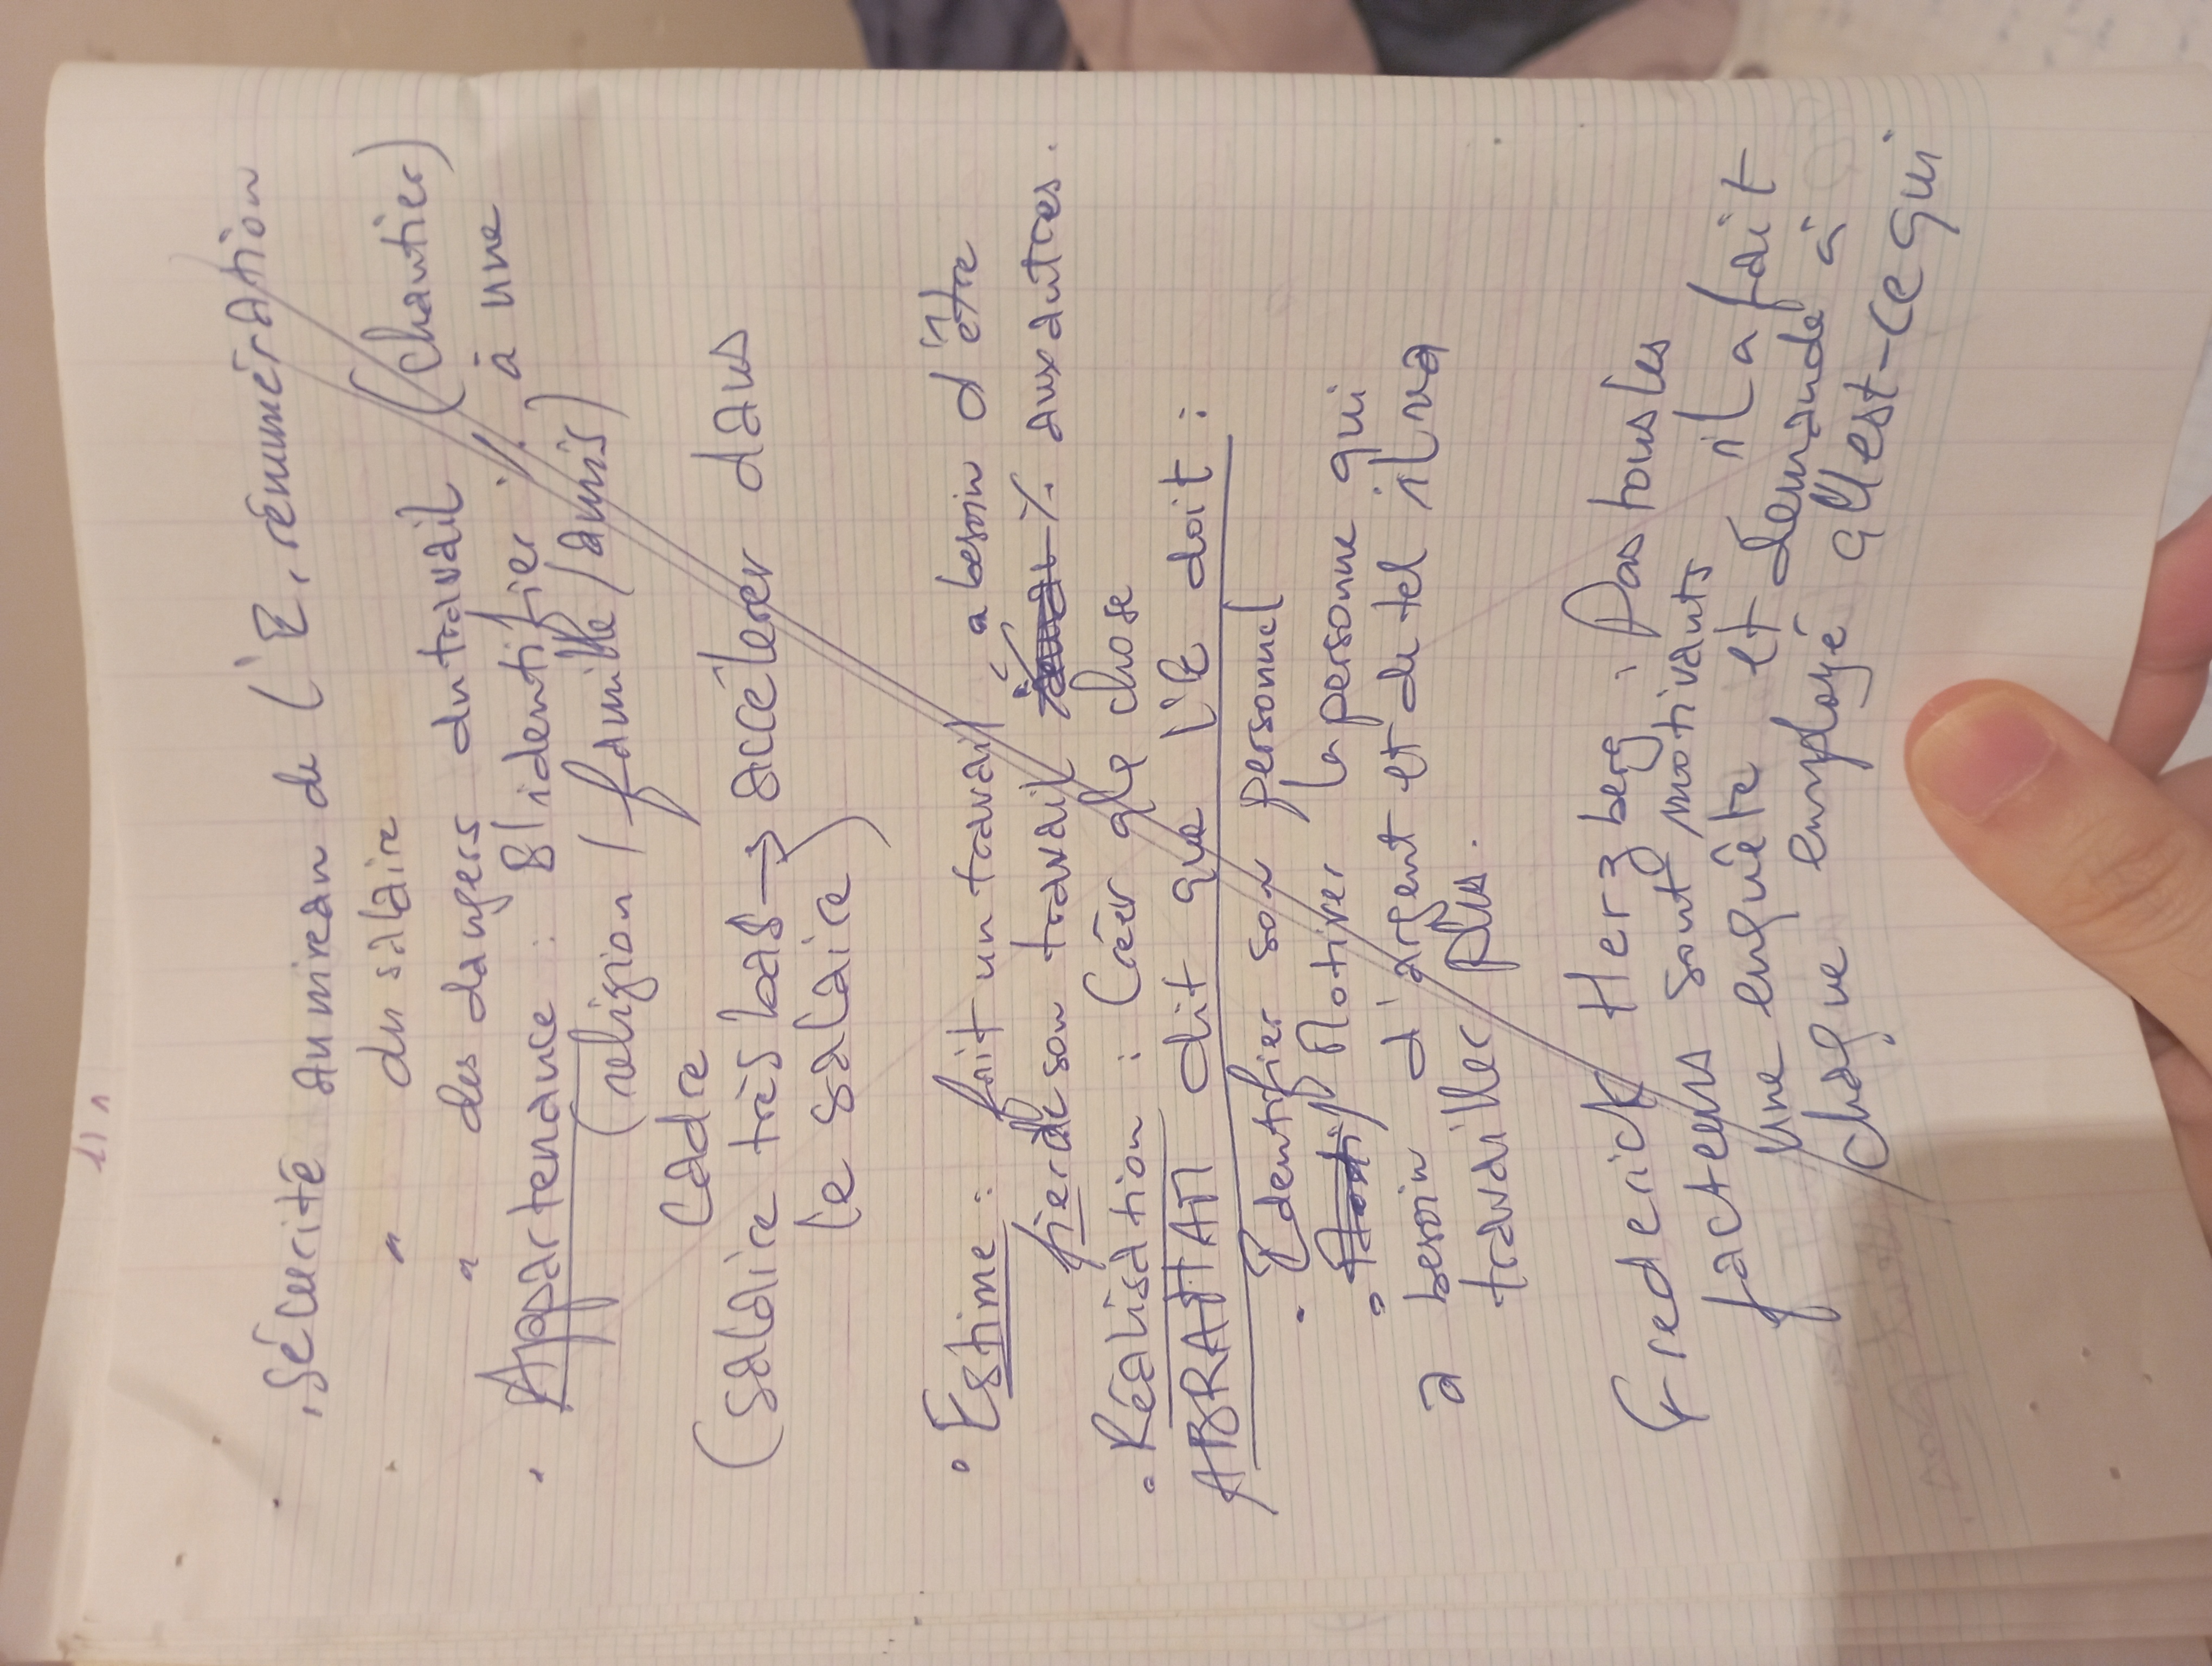 . Sécurité au niveau de l'E, rémunération
" du salaire
" des dangers du travail (chantier)
. Appartenance : S'identifier % à une
(religion / famille / amis)
Cadre
(salaire très bas → accélerer dans
le salaire)
• Estime : fait un travail, a besoin d'être
fier de son travail % aux autres.
. Réalisation : Créer qlq chose
ABRAHAM dit que l'E doit :
. Identifier son personnel
. Motiver la personne qui
a besoin d'argent et de tel il va
travailler plus.
Frederick Herzberg : Pas tous les
facteurs sont motivants, il a fait
une enquête et demandé à
chaque employé qu'est-ce qui